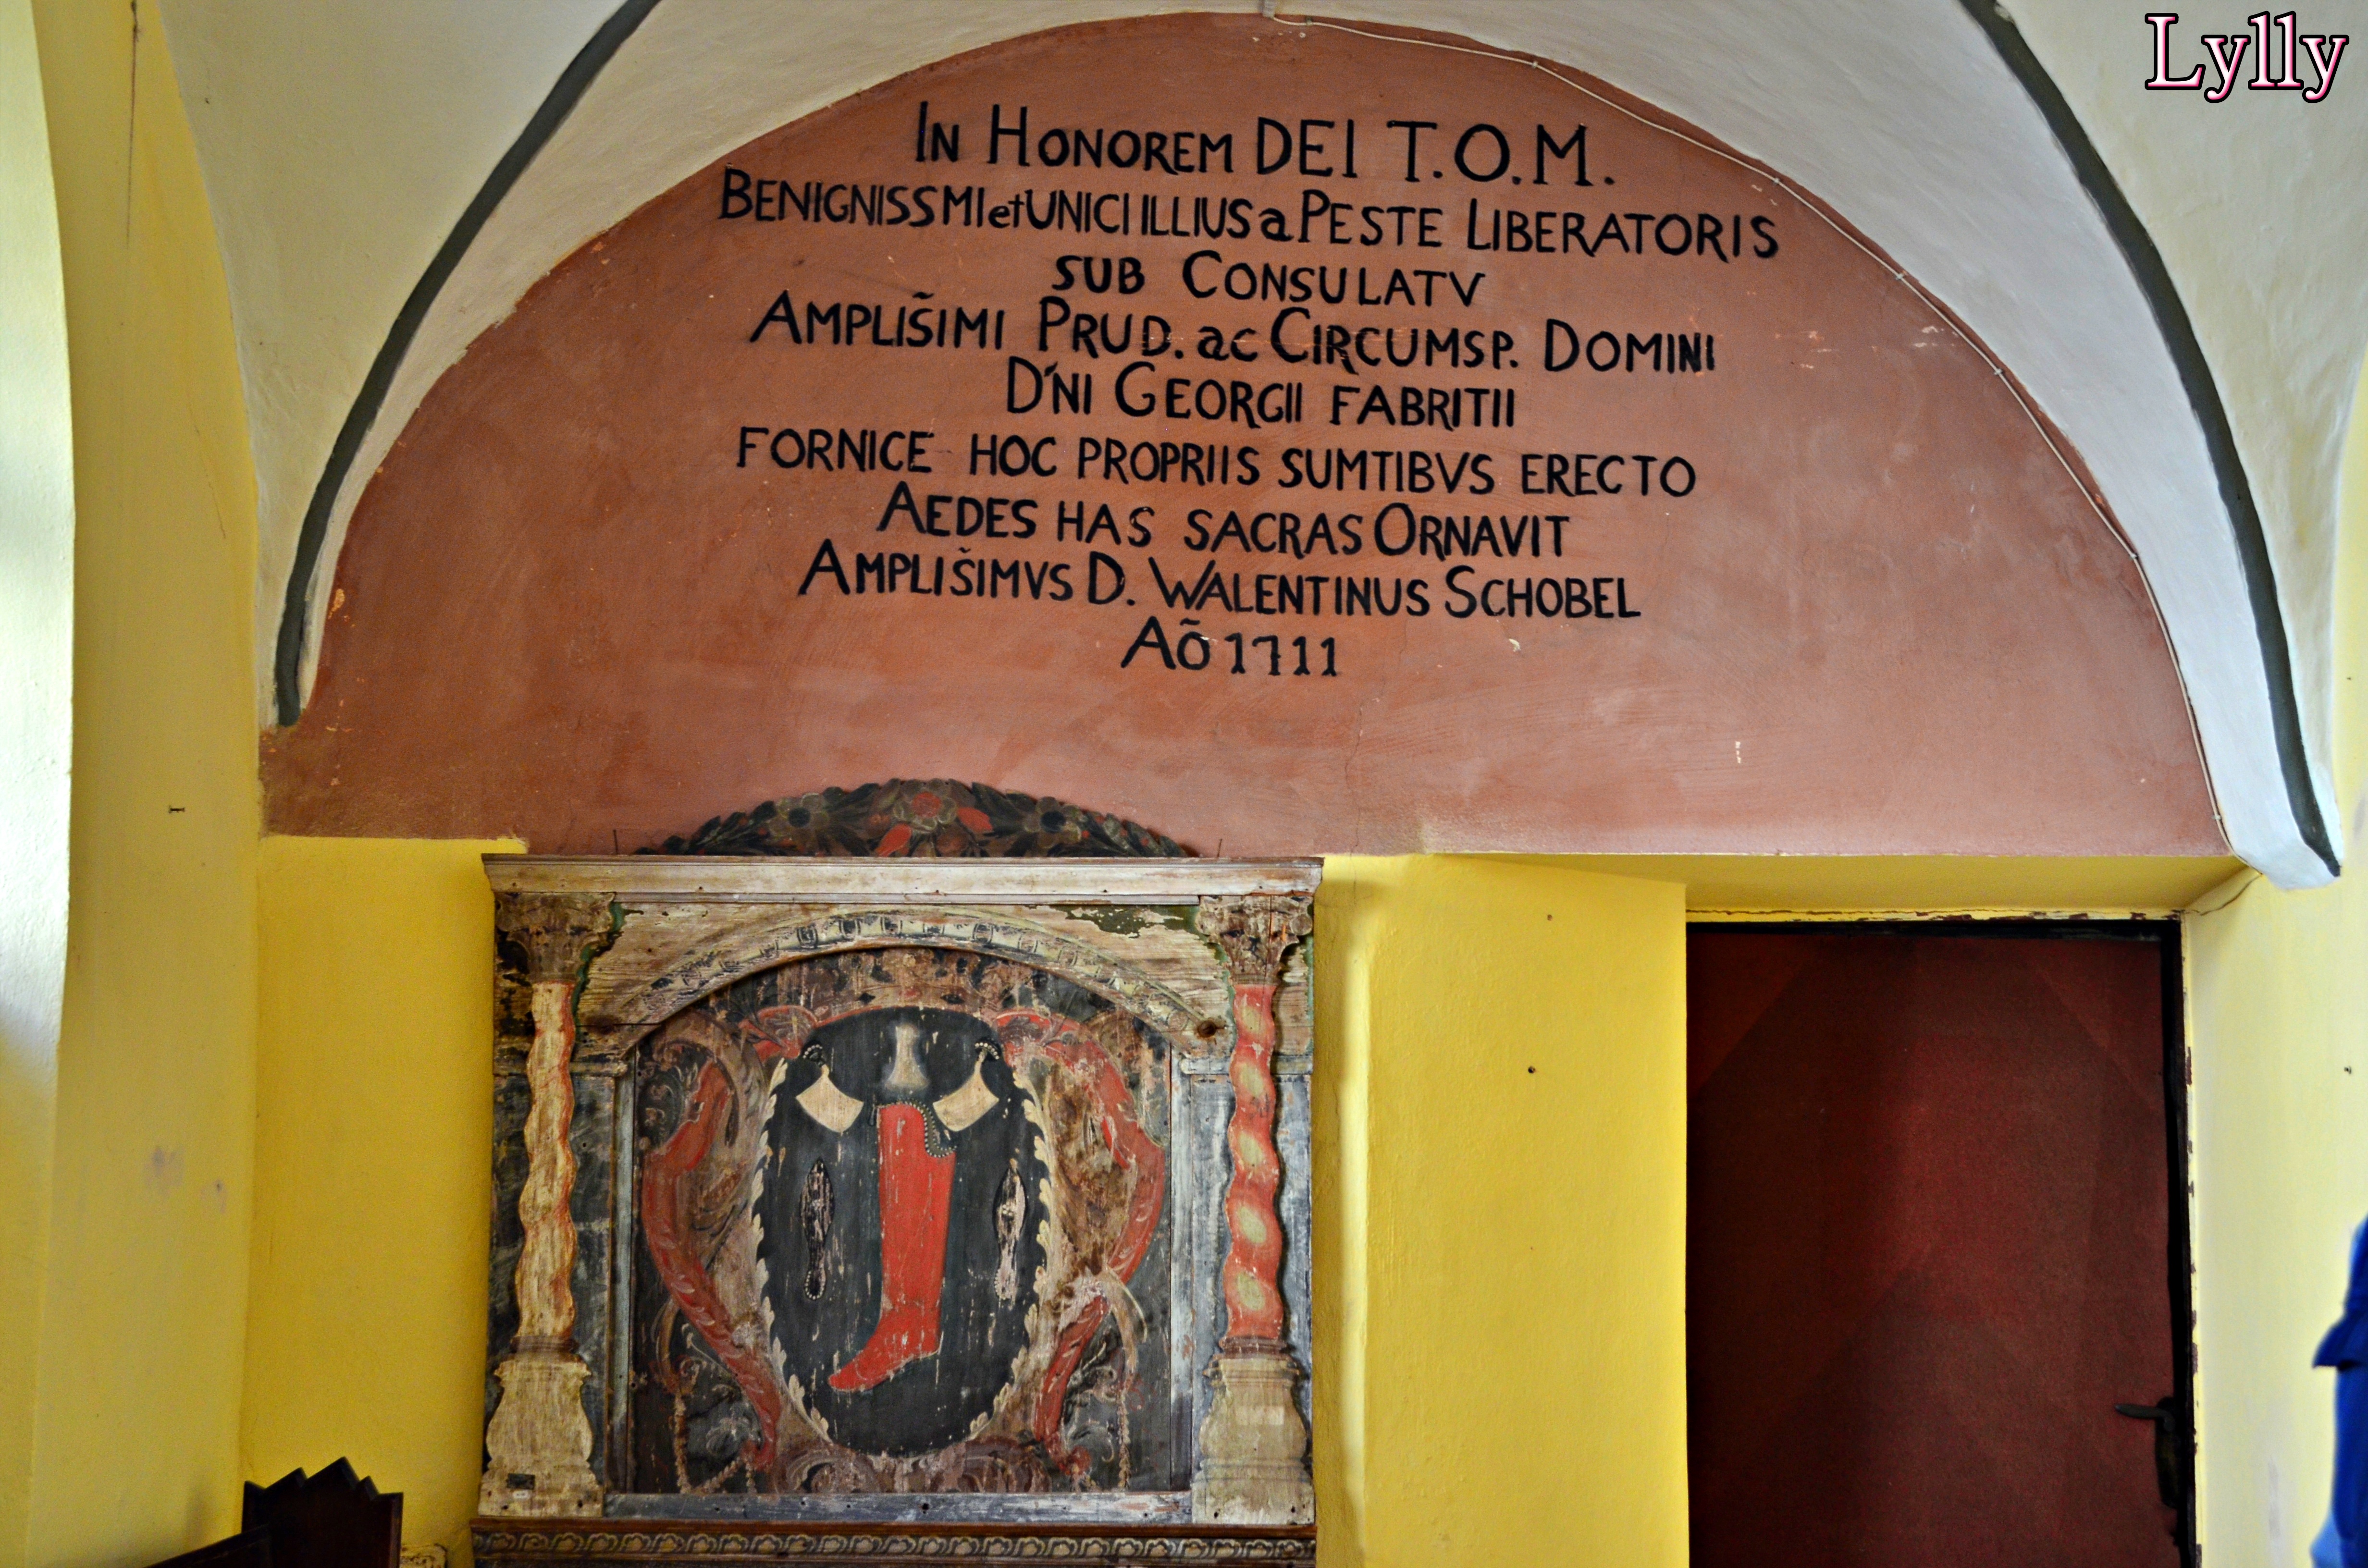 Lylly
IN HONOREM DEI T.O.M.
BENIGNISSMI et UNICI ILLIUS a PESTE LIBERATORIS
SUB CONSULATV
AMPLIS̃IMI PRUD. ac CIRCUMSP. DOMINI
D'NI GEORGII FABRITII
FORNICE HOC PROPRIIS SUMTIBVS ERECTO
AEDES HAS SACRAS ORNAVIT
AMPLIS̃IMVS D. WALENTINUS SCHOBEL
AÕ 1711